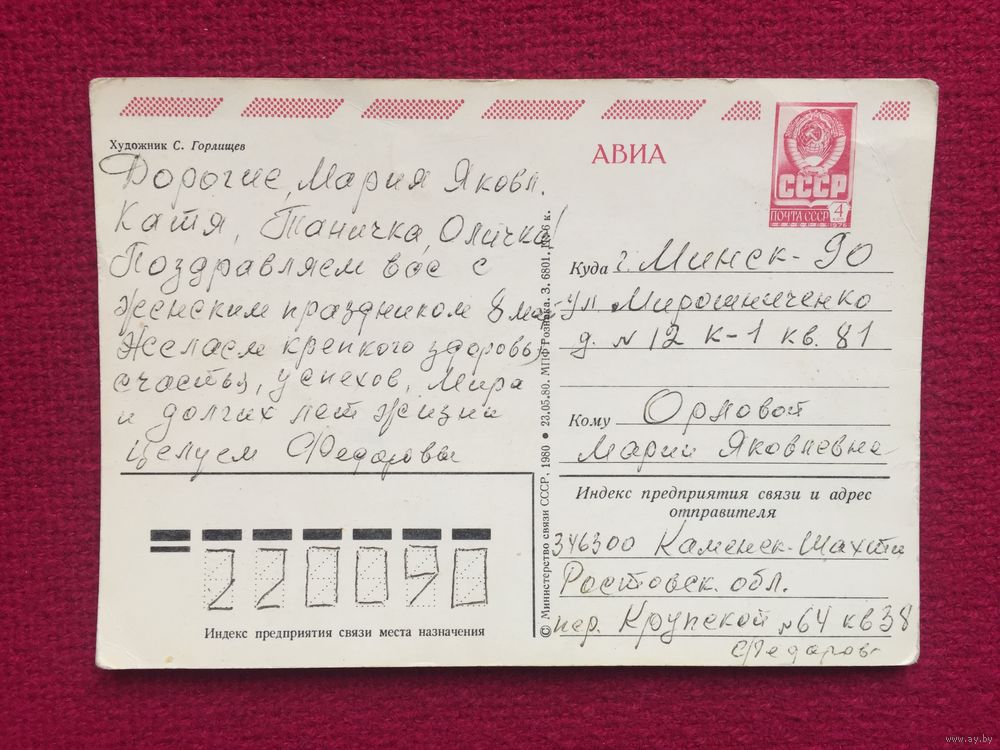 Художник С. Горлищев
АВИА
СССР
ПОЧТА СССР 4 коп
1978
Дорогие, Мария Яковл.
Катя, Таничка, Оличка!
Поздравляем вас с
женским праздником 8 мар
Желаем крепкого здоровья,
счастья, успехов, Мира
и долгих лет жизни
Целуем Федоровы
Куда г. Минск-90
ул Мирошниченко
д. N 12 к-1 кв. 81
Кому Орловой
Марии Яковлевне
Индекс предприятия связи и адрес
отправителя
346300 Каменск-Шахти
Ростовск. обл.
пер. Крупской N 64 кв 38
Федоров
220090
Индекс предприятия связи места назначения
© Министерство связи СССР, 1980 • 23.05.80. МПФ Гознака. З. 6801. Ц. 6 к.
www.ay.by